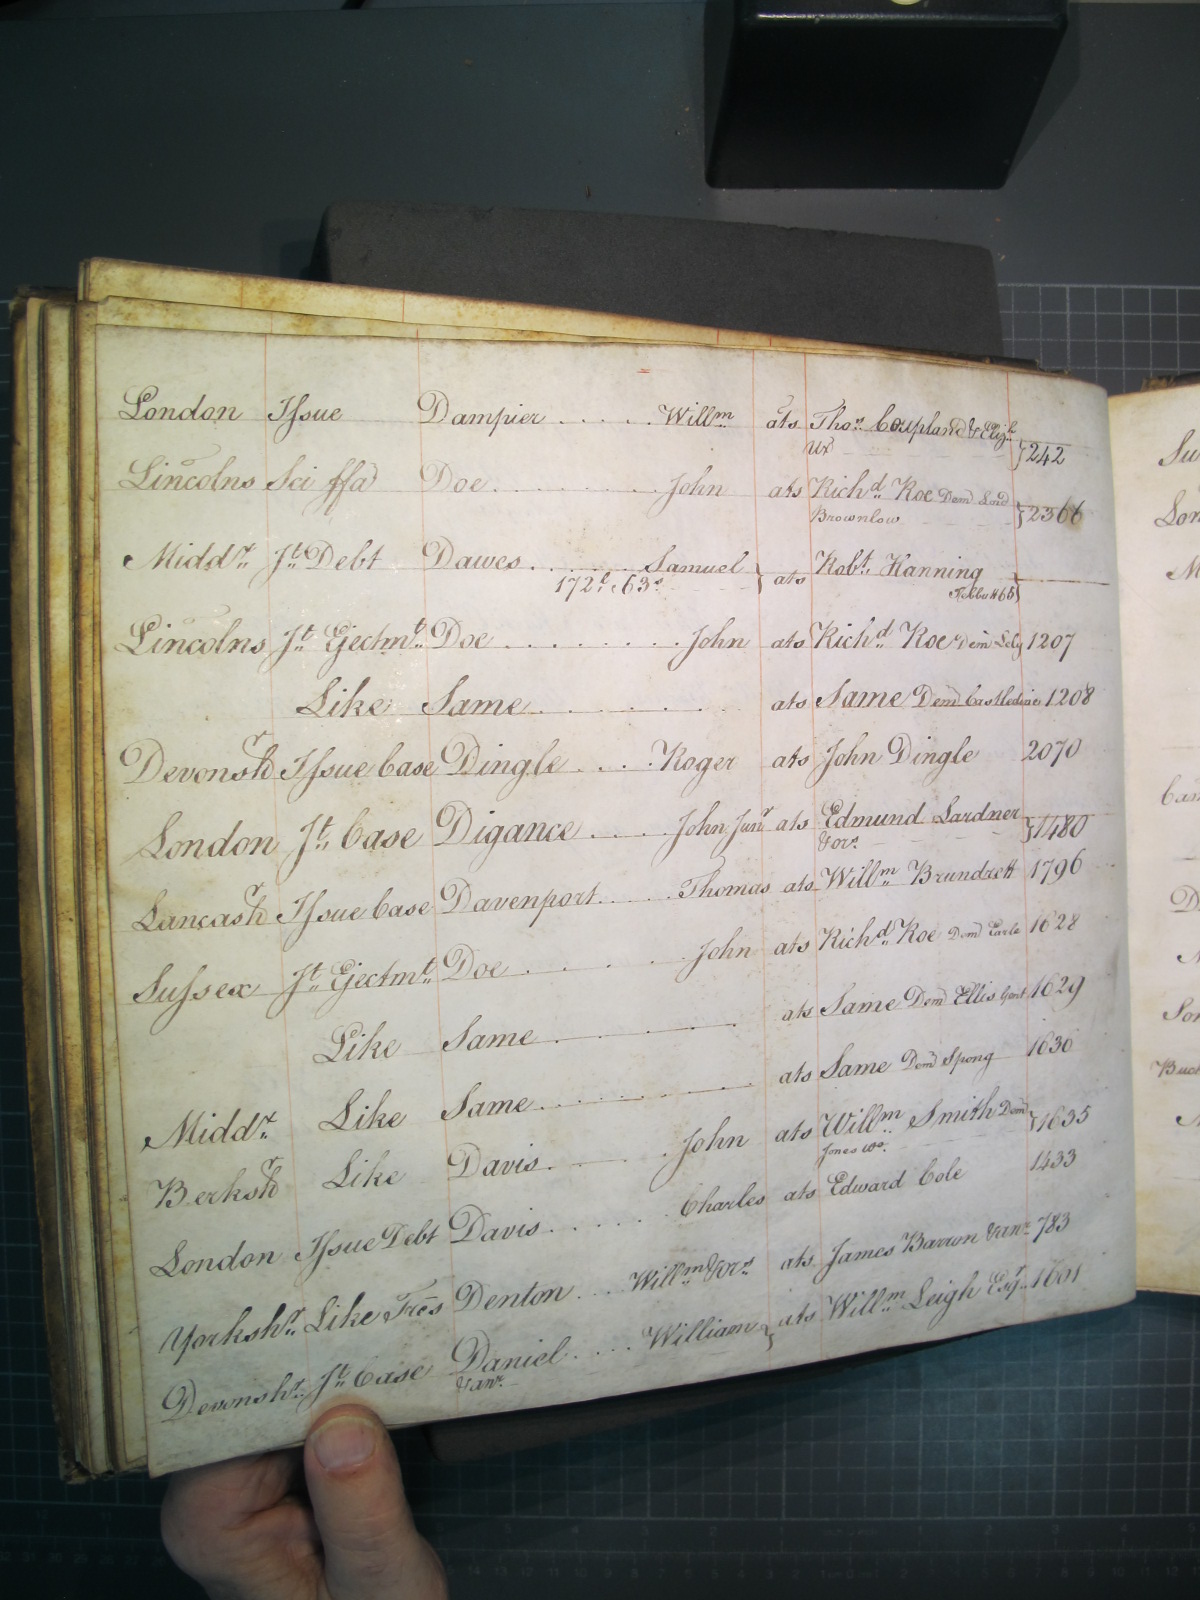 London Issue Dampier . . . . . Willm ats Thos. Coupland & Eliz:h
Ux 242
Lincolns Sci ffa Doe . . . . . . . . John ats Richd. Roe Dem Lord
Brownlow 2366
Middx. Jt. Debt Dawes . . . . . . Samuel ats Robt. Hanning
172£. 63s
Lincolns Jt. Ejectmt. Doe . . . . . . . . John ats Richd Roe Dem Lely 1207
Like Same . . . . . . ats Same Dem Castledine 1208
Devonshr Issue Case Dingle . . . . Roger ats John Dingle 2070
London Jt. Case Digance . . . . John Junr ats Edmund Lardner
& ors. 1480
Lancashr Issue Case Davenport . . . . Thomas ats Willm. Brundrett 1796
Sussex Jt. Ejectmt. Doe . . . . . John ats Richd. Roe Dem Earle 1628
Like Same . . . . . ats Same Dem Ellis Gent 1629
Middx. Like Same . . . . . . ats Same Dem Spong 1630
Berkshr Like Davis . . . . John ats Willm. Smith Dem
Jones Wo. 1635
London Issue Debt Davis . . . . . . Charles ats Edward Cole 1433
Yorkshr. Like Tres Denton . . . Willm & Ors ats James Barron & anr. 783
Devonshr. Jt. Case Daniel . . . . William ats Willm. Leigh Esqr. 1601
& anr.
Su
Lon
M
Can
D
Lon
Buck